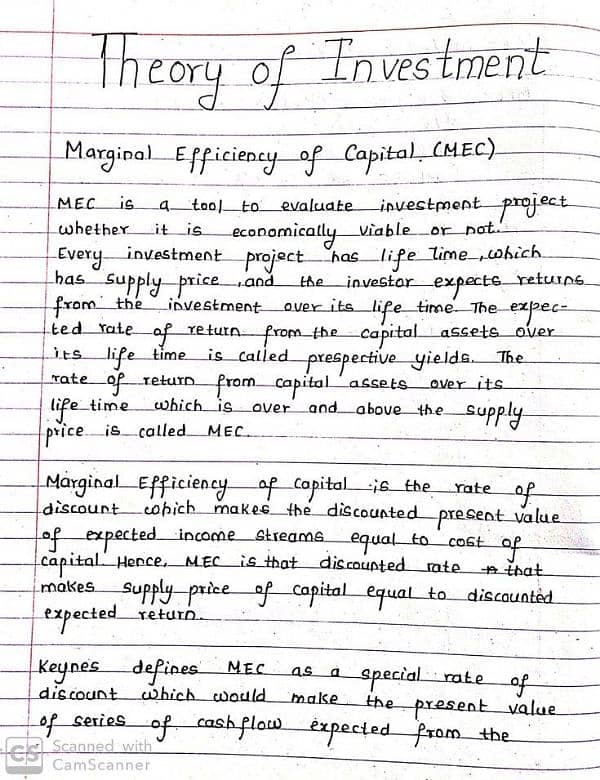 Theory of Investment
Marginal Efficiency of Capital. (MEC)
MEC is a tool to evaluate investment project
whether it is economically viable or not.
Every investment project has life time, which
has supply price, and the investor expects returns
from the investment over its life time. The expec-
ted rate of return from the capital assets over
its life time is called prespective yields. The
rate of return from capital assets over its
life time which is over and above the supply
price is called MEC.
Marginal Efficiency of Capital is the rate of
discount which makes the discounted present value
of expected income streams equal to cost of
capital. Hence, MEC is that discounted rate that
makes supply price of capital equal to discounted
expected return.
Keynes defines MEC as a special rate of
discount which would make the present value
of series of cash flow expected from the
CS Scanned with
CamScanner